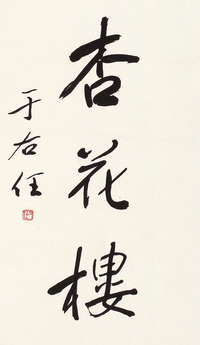 杏花樓
于右任